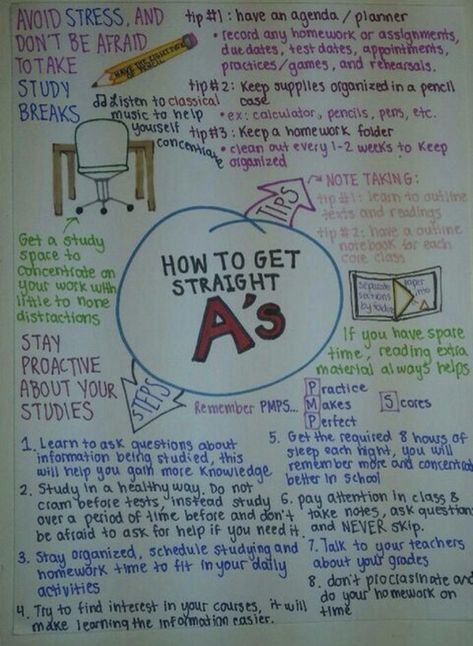 AVOID STRESS, AND
DON'T BE AFRAID
TO TAKE
STUDY
BREAKS
tip #1: have an agenda / planner
• record any homework or assignments,
due dates, test dates, appointments,
practices/games, and rehearsals.
tip #2: Keep supplies organized in a pencil
case
• ex: calculator, pencils, pens, etc.
tip #3: Keep a homework folder
• clean out every 1-2 weeks to keep
organized
listen to classical
music to help
yourself
concentrate
Get a study
space to
concentrate on
your work with
little to none
distractions
TIPS
NOTE TAKING:
tip #1: learn to outline
texts and readings
tip #2: have a outline
notebook for each
core class
HOW TO GET
STRAIGHT
A's
separate
sections
by folder
paper
into
If you have spare
time, reading extra
material always helps
STAY
PROACTIVE
ABOUT YOUR
STUDIES
STEPS
Remember PMPS...
Practice
Makes
Perfect
Scores
1. Learn to ask questions about
information being studied, this
will help you gain more knowledge
2. Study in a healthy way. Do not
cram before tests, instead study
over a period of time before and don't
be afraid to ask for help if you need it.
3. Stay organized, schedule studying and
homework time to fit in your daily
activities
4. Try to find interest in your courses, it will
make learning the information easier.
5. Get the required 8 hours of
sleep each night, you will
remember more and concentrate
better in school
6. pay attention in class &
take notes, ask questions
and NEVER skip.
7. Talk to your teachers
about your grades
8. don't procrasinate and
do your homework on
time